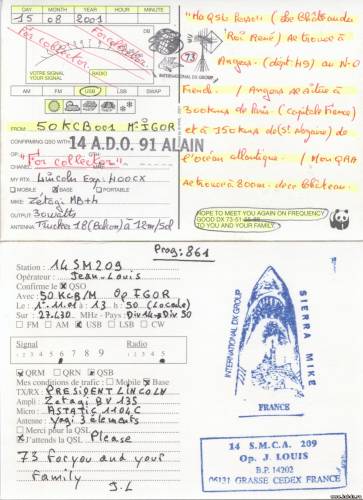 DAY MONTH YEAR HOUR UTC
15 08 2001
"For collector"
For collector
VOTRE SIGNAL
YOUR SIGNAL
RADIO
DB
INTERNATIONAL DX GROUP
73
AM FM USB LSB
FROM 50KCB001 M. IGOR
CONFIRMING QSO WITH 14 A.D.O. 91 ALAIN
OP.
"For collector"
CHANNEL
MY RTX Lincoln Exp. HOOCX
MOBILE BASE PORTABLE
MIKE Zetagi MB+4
OUTPUT 30 watts
ANTENNA Trucker 18 (Balcon) à 12m/sol
"Ma QSL Perso" (Le Château du
Roi René) se trouve à
Angers. (dept 49) au N-O
French. / Angers se situe à
300kms de Paris (capitale France)
et à 150kms de (St. Nazaire) de
l'océan atlantique. / Mon QRA
se trouve à 800m. de ce Château.
HOPE TO MEET YOU AGAIN ON FREQUENCY
GOOD DX 73-51
TO YOU AND YOUR FAMILY
WWF
Prog: 861
Station : 14SM209
Opérateur : Jean-Louis
Confirme le QSO
Avec : 50KCB/M Op IGOR
Le : 1.11.01 à 13 h : 50 (Locale)
Sur : 27.430 MHz - Pays : Div 14 → Div 50
FM AM USB LSB CW
Signal Radio
1 2 3 4 5 6 7 8 9
QRM QRN QSB
Mes conditions de trafic : Mobile Base
TX/RX : PRESIDENT LINCOLN
Ampli : Zetagi BV 135
Micro : ASTATIC 1104C
Antenne : yagi 3 elements
Merci pour la QSL
J'attends la QSL Please
73 for you and your
Family
J.L
INTERNATIONAL DX GROUP
SIERRA MIKE
FRANCE
14 S.M.C.A. 209
Op. J. LOUIS
B.P. 14202
06131 GRASSE CEDEX FRANCE